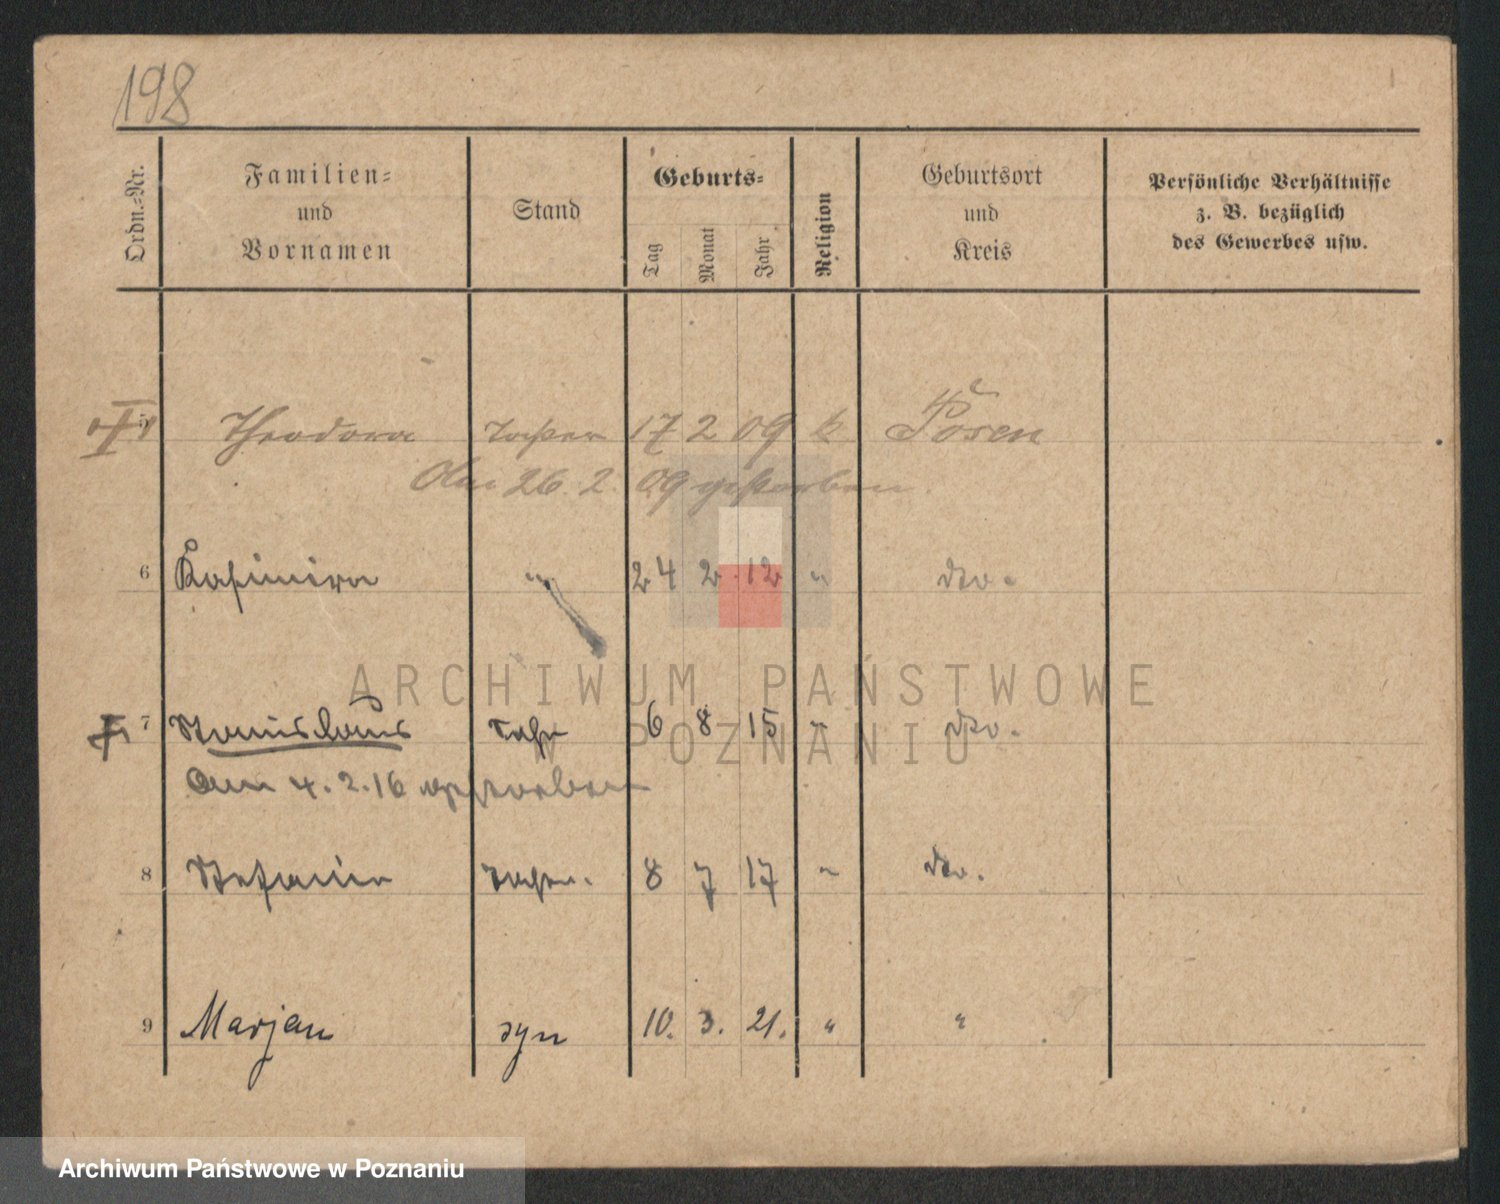 198
Ordn.-Nr.
Familien-
und
Vornamen
Stand
Geburts-
Tag
Monat
Jahr
Religion
Geburtsort
und
Kreis
Persönliche Verhältnisse
z. B. bezüglich
des Gewerbes usw.
5 Theodora Tochter 17 2 09 k Posen
Am 26. 2. 09 gestorben.
6 Kasimira " 24 2. 12 " dto.
7 Stanislaus Sohn 6 8 15 " dto.
Am 4. 2. 16 gestorben
8 Stefania Tochter. 8 7 17 " dto.
9 Marjan syn 10. 3. 21. " "
ARCHIWUM PAŃSTWOWE
W POZNANIU
Archiwum Państwowe w Poznaniu